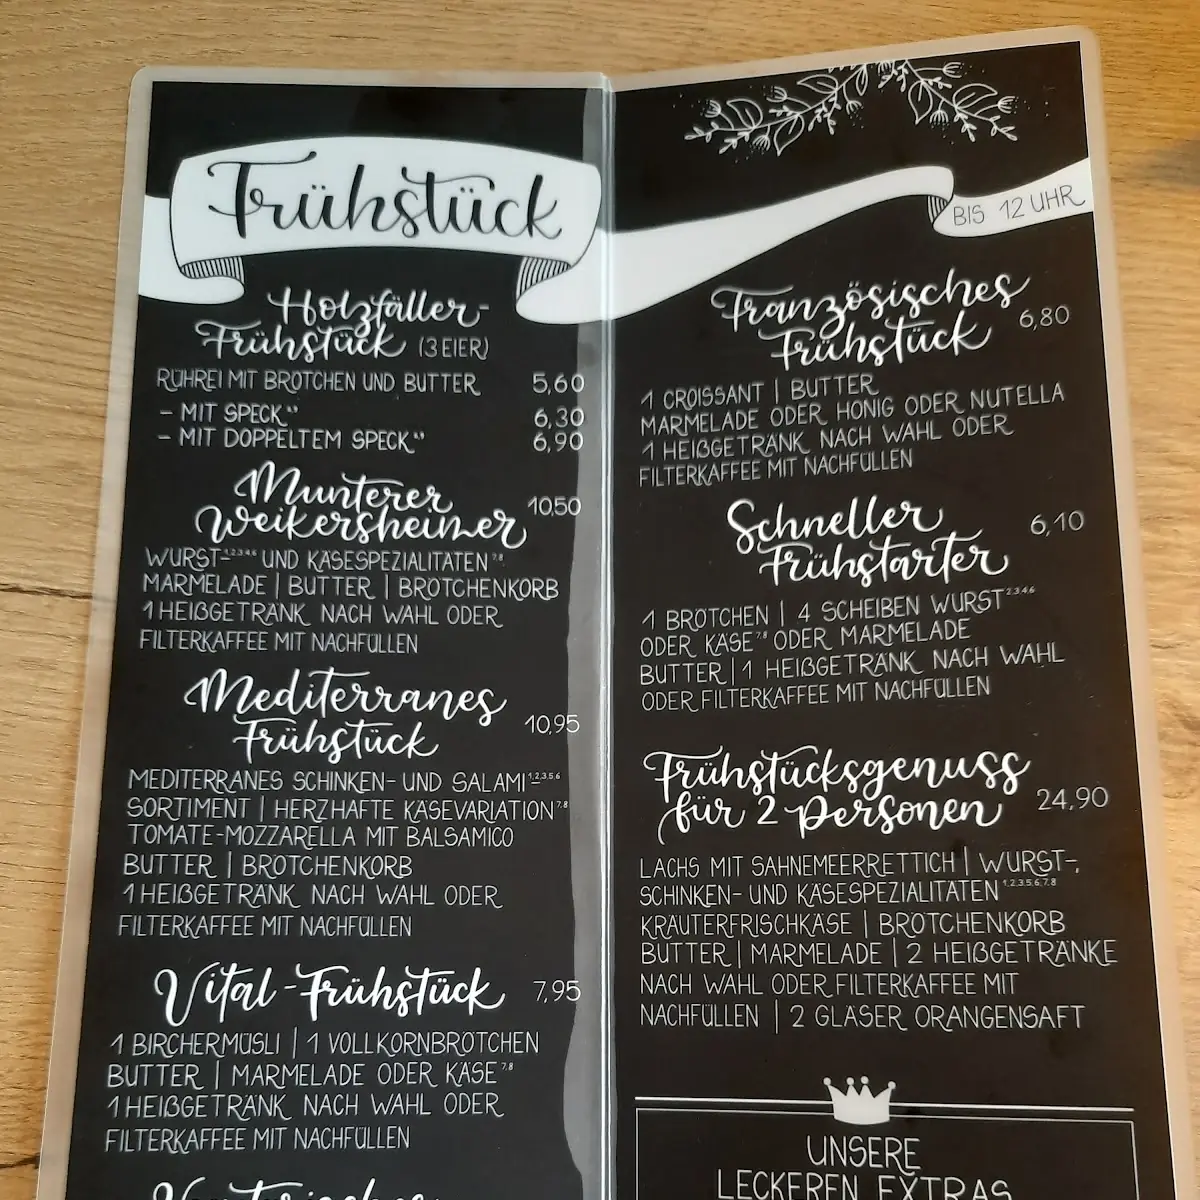 Frühstück
BIS 12 UHR
Holzfäller-
Frühstück (3 EIER)
RÜHREI MIT BRÖTCHEN UND BUTTER 5,60
- MIT SPECK 6,30
- MIT DOPPELTEM SPECK 6,90
Munterer
Weikersheimer 10,50
WURST-1,2,3,4,6 UND KÄSESPEZIALITÄTEN 7,8
MARMELADE | BUTTER | BRÖTCHENKORB
1 HEIßGETRÄNK NACH WAHL ODER
FILTERKAFFEE MIT NACHFÜLLEN
Mediterranes
Frühstück 10,95
MEDITERRANES SCHINKEN- UND SALAMI-1,2,3,5,6
SORTIMENT | HERZHAFTE KÄSEVARIATION 7,8
TOMATE-MOZZARELLA MIT BALSAMICO
BUTTER | BRÖTCHENKORB
1 HEIßGETRÄNK NACH WAHL ODER
FILTERKAFFEE MIT NACHFÜLLEN
Vital-Frühstück 7,95
1 BIRCHERMÜSLI | 1 VOLLKORNBRÖTCHEN
BUTTER | MARMELADE ODER KÄSE 7,8
1 HEIßGETRÄNK NACH WAHL ODER
FILTERKAFFEE MIT NACHFÜLLEN
Französisches
Frühstück 6,80
1 CROISSANT | BUTTER
MARMELADE ODER HONIG ODER NUTELLA
1 HEIßGETRÄNK NACH WAHL ODER
FILTERKAFFEE MIT NACHFÜLLEN
Schneller
Frühstarter 6,10
1 BRÖTCHEN | 4 SCHEIBEN WURST 2,3,4,6
ODER KÄSE 7,8 ODER MARMELADE
BUTTER | 1 HEIßGETRÄNK NACH WAHL
ODER FILTERKAFFEE MIT NACHFÜLLEN
Frühstücksgenuss
für 2 Personen 24,90
LACHS MIT SAHNEMEERRETTICH | WURST-,
SCHINKEN- UND KÄSESPEZIALITÄTEN 1,2,3,5,6,7,8
KRÄUTERFRISCHKÄSE | BRÖTCHENKORB
BUTTER | MARMELADE | 2 HEIßGETRÄNKE
NACH WAHL ODER FILTERKAFFEE MIT
NACHFÜLLEN | 2 GLÄSER ORANGENSAFT
UNSERE
LECKEREN EXTRAS